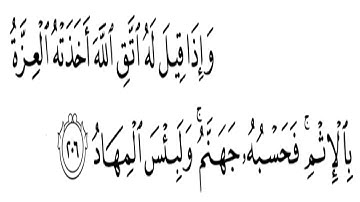 وَإِذَا قِيلَ لَهُ ٱتَّقِ ٱللَّهَ أَخَذَتْهُ ٱلْعِزَّةُ
بِٱلْإِثْمِ ۚ فَحَسْبُهُۥ جَهَنَّمُ ۚ وَلَبِئْسَ ٱلْمِهَادُ ٢٠٦